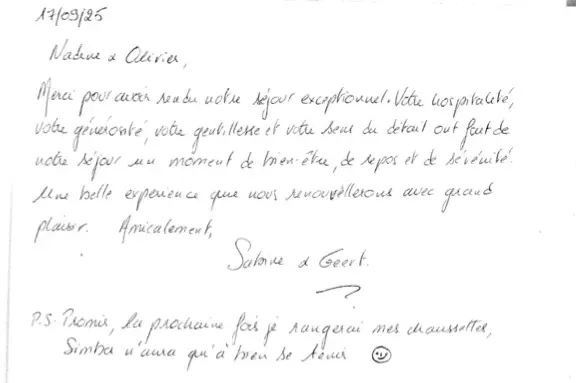 17/09/25
Nadine & Olivier,
Merci pour avoir rendu notre séjour exceptionnel. Votre hospitalité,
votre générosité, votre gentillesse et votre sens du détail ont fait de
notre séjour un moment de bien-être, de repos et de sérénité.
Une belle expérience que nous renouvèllerons avec grand
plaisir. Amicalement,
Sabine & Geert.
P.S. Promis, la prochaine fois je rangerai mes chaussettes,
Simba n'aura qu'à bien se tenir ☺